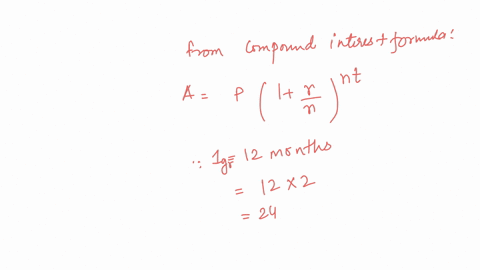 from compound interest formula:
A = P ( 1 + r/n )^nt
∵ 1yr = 12 months
= 12 × 2
= 24